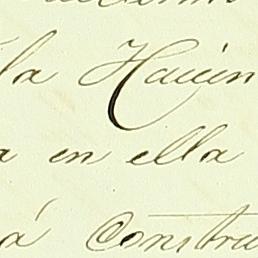 la Hacien
a en ella
á Constru